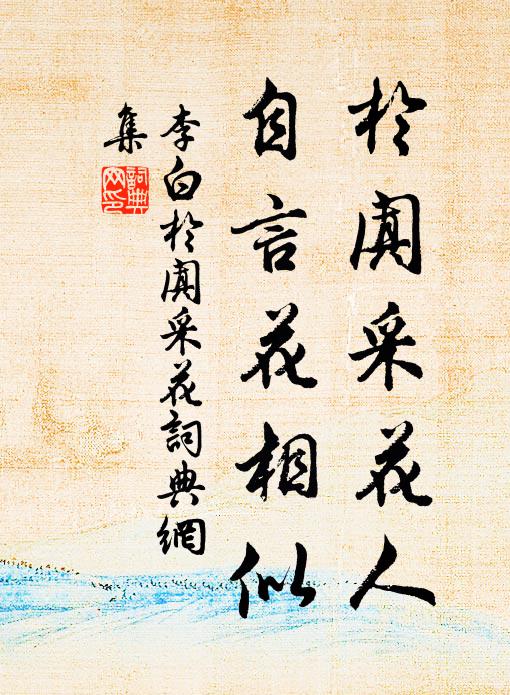 於闐采花人
自言花相似
李白於闐采花詞典網
集
詞典
网印